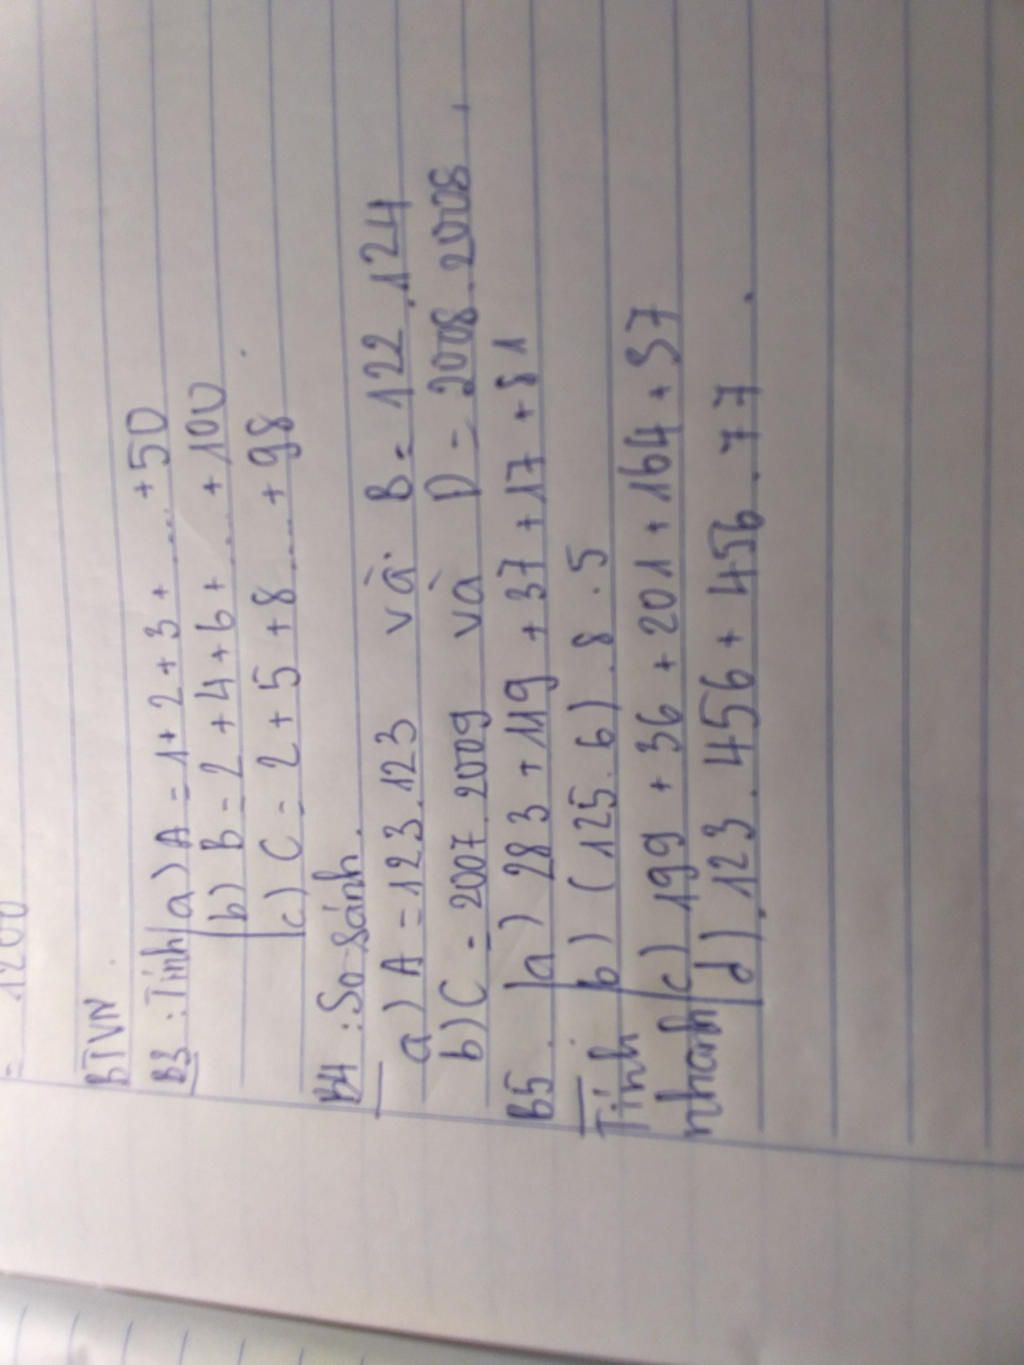 = 1200
BTVN
B3 : Tính a) A = 1 + 2 + 3 + .... + 50
b) B = 2 + 4 + 6 + .... + 100
c) C = 2 + 5 + 8 .... + 98
B4 : So sánh.
a) A = 123.123 và B = 122.124
b) C = 2007.2009 và D = 2008.2008.
B5. a) 283 + 119 + 37 + 17 + 81
Tính b) (125.6).8.5
nhanh c) 199 + 36 + 201 + 164 + 37
d) 123.456 + 456.77